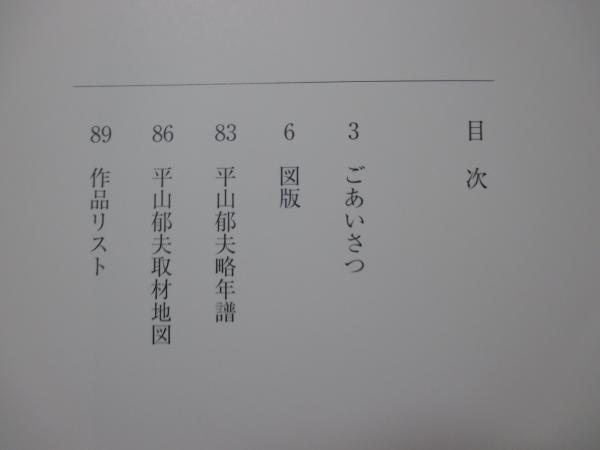 目次
3 ごあいさつ
6 図版
83 平山郁夫略年譜
86 平山郁夫取材地図
89 作品リスト